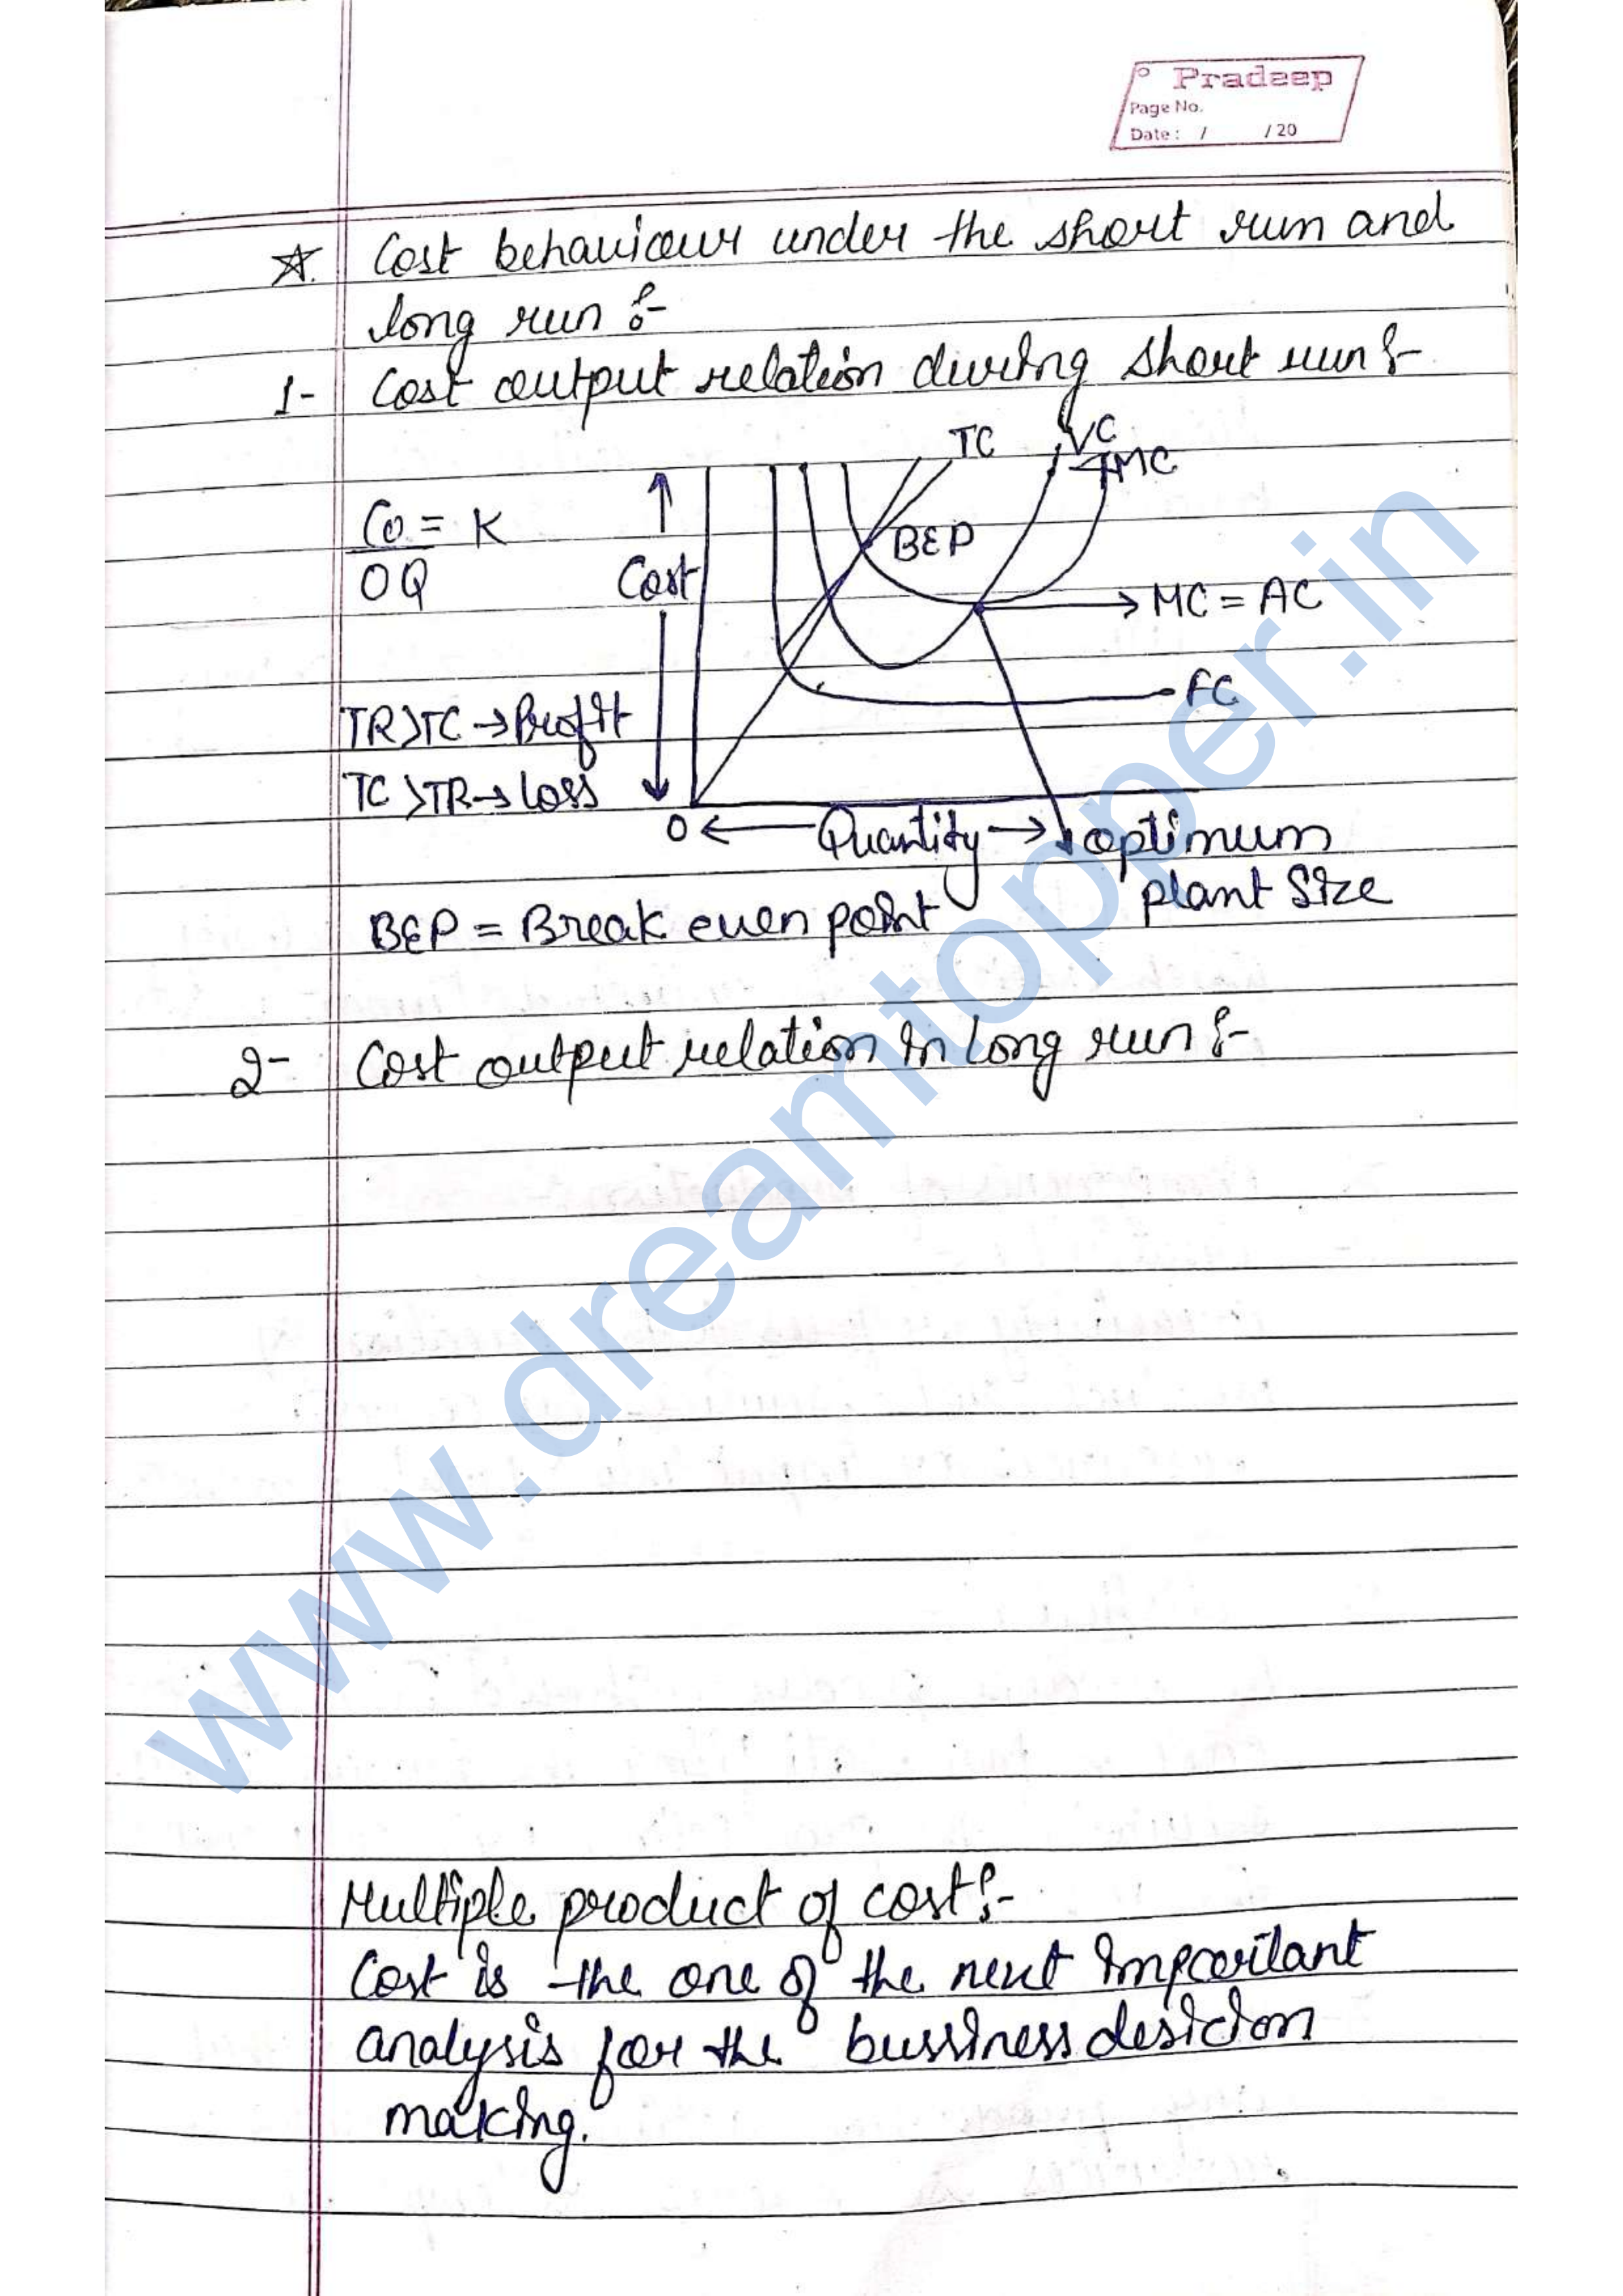 Pradeep
Page No.
Date: / /20
☆. Cost behaviour under the short run and
long run :-
1- Cost output relation during short run :-
TC VC
MC
Co = K
OQ
↑
Cost
BEP
→ MC = AC
FC
TR>TC → Profit
TC>TR → Loss
O ← Quantity → optimum
plant Size
BEP = Break even point
2- Cost output relation in long run :-
Multiple product of cost :-
Cost is the one of the next important
analysis for the bussiness desicion
making.
www.dreamtopper.in